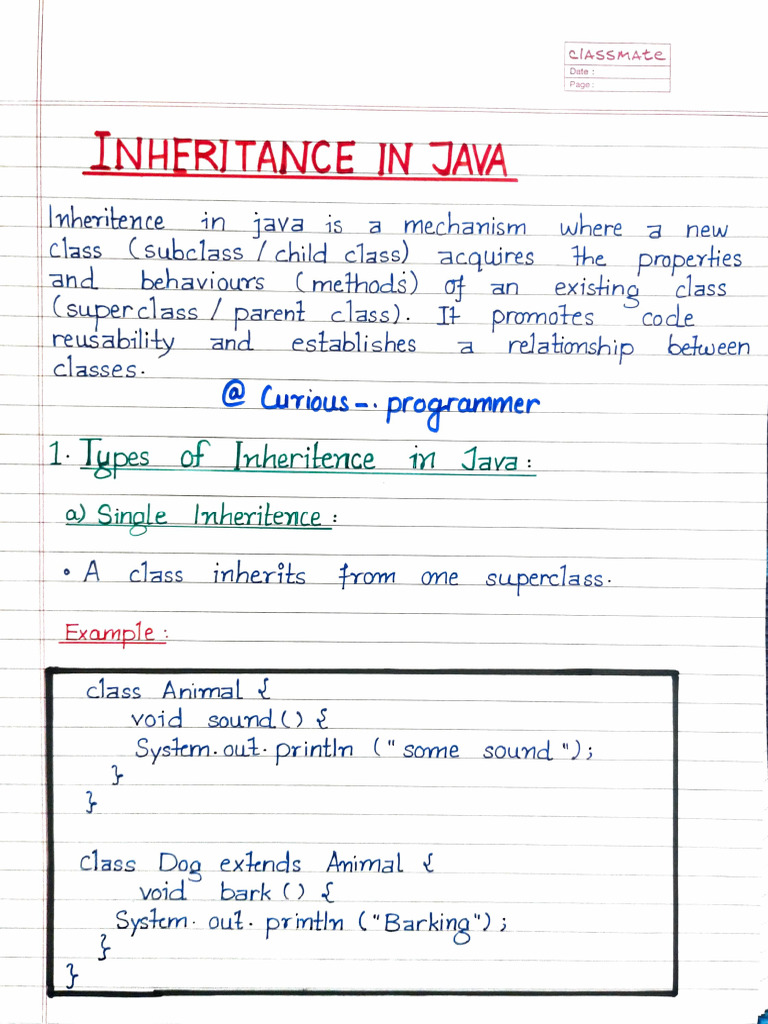 classmate
Date :
Page :
INHERITANCE IN JAVA
Inheritence in java is a mechanism where a new
class (subclass / child class) acquires the properties
and behaviours (methods) of an existing class
(superclass / parent class). It promotes code
reusability and establishes a relationship between
classes.
@ Curious_. programmer
1. Types of Inheritence in Java :
a) Single Inheritence :
• A class inherits from one superclass.
Example :
class Animal {
void sound() {
System.out.println (" some sound ");
}
}
class Dog extends Animal {
void bark () {
System. out. println ("Barking");
}
}